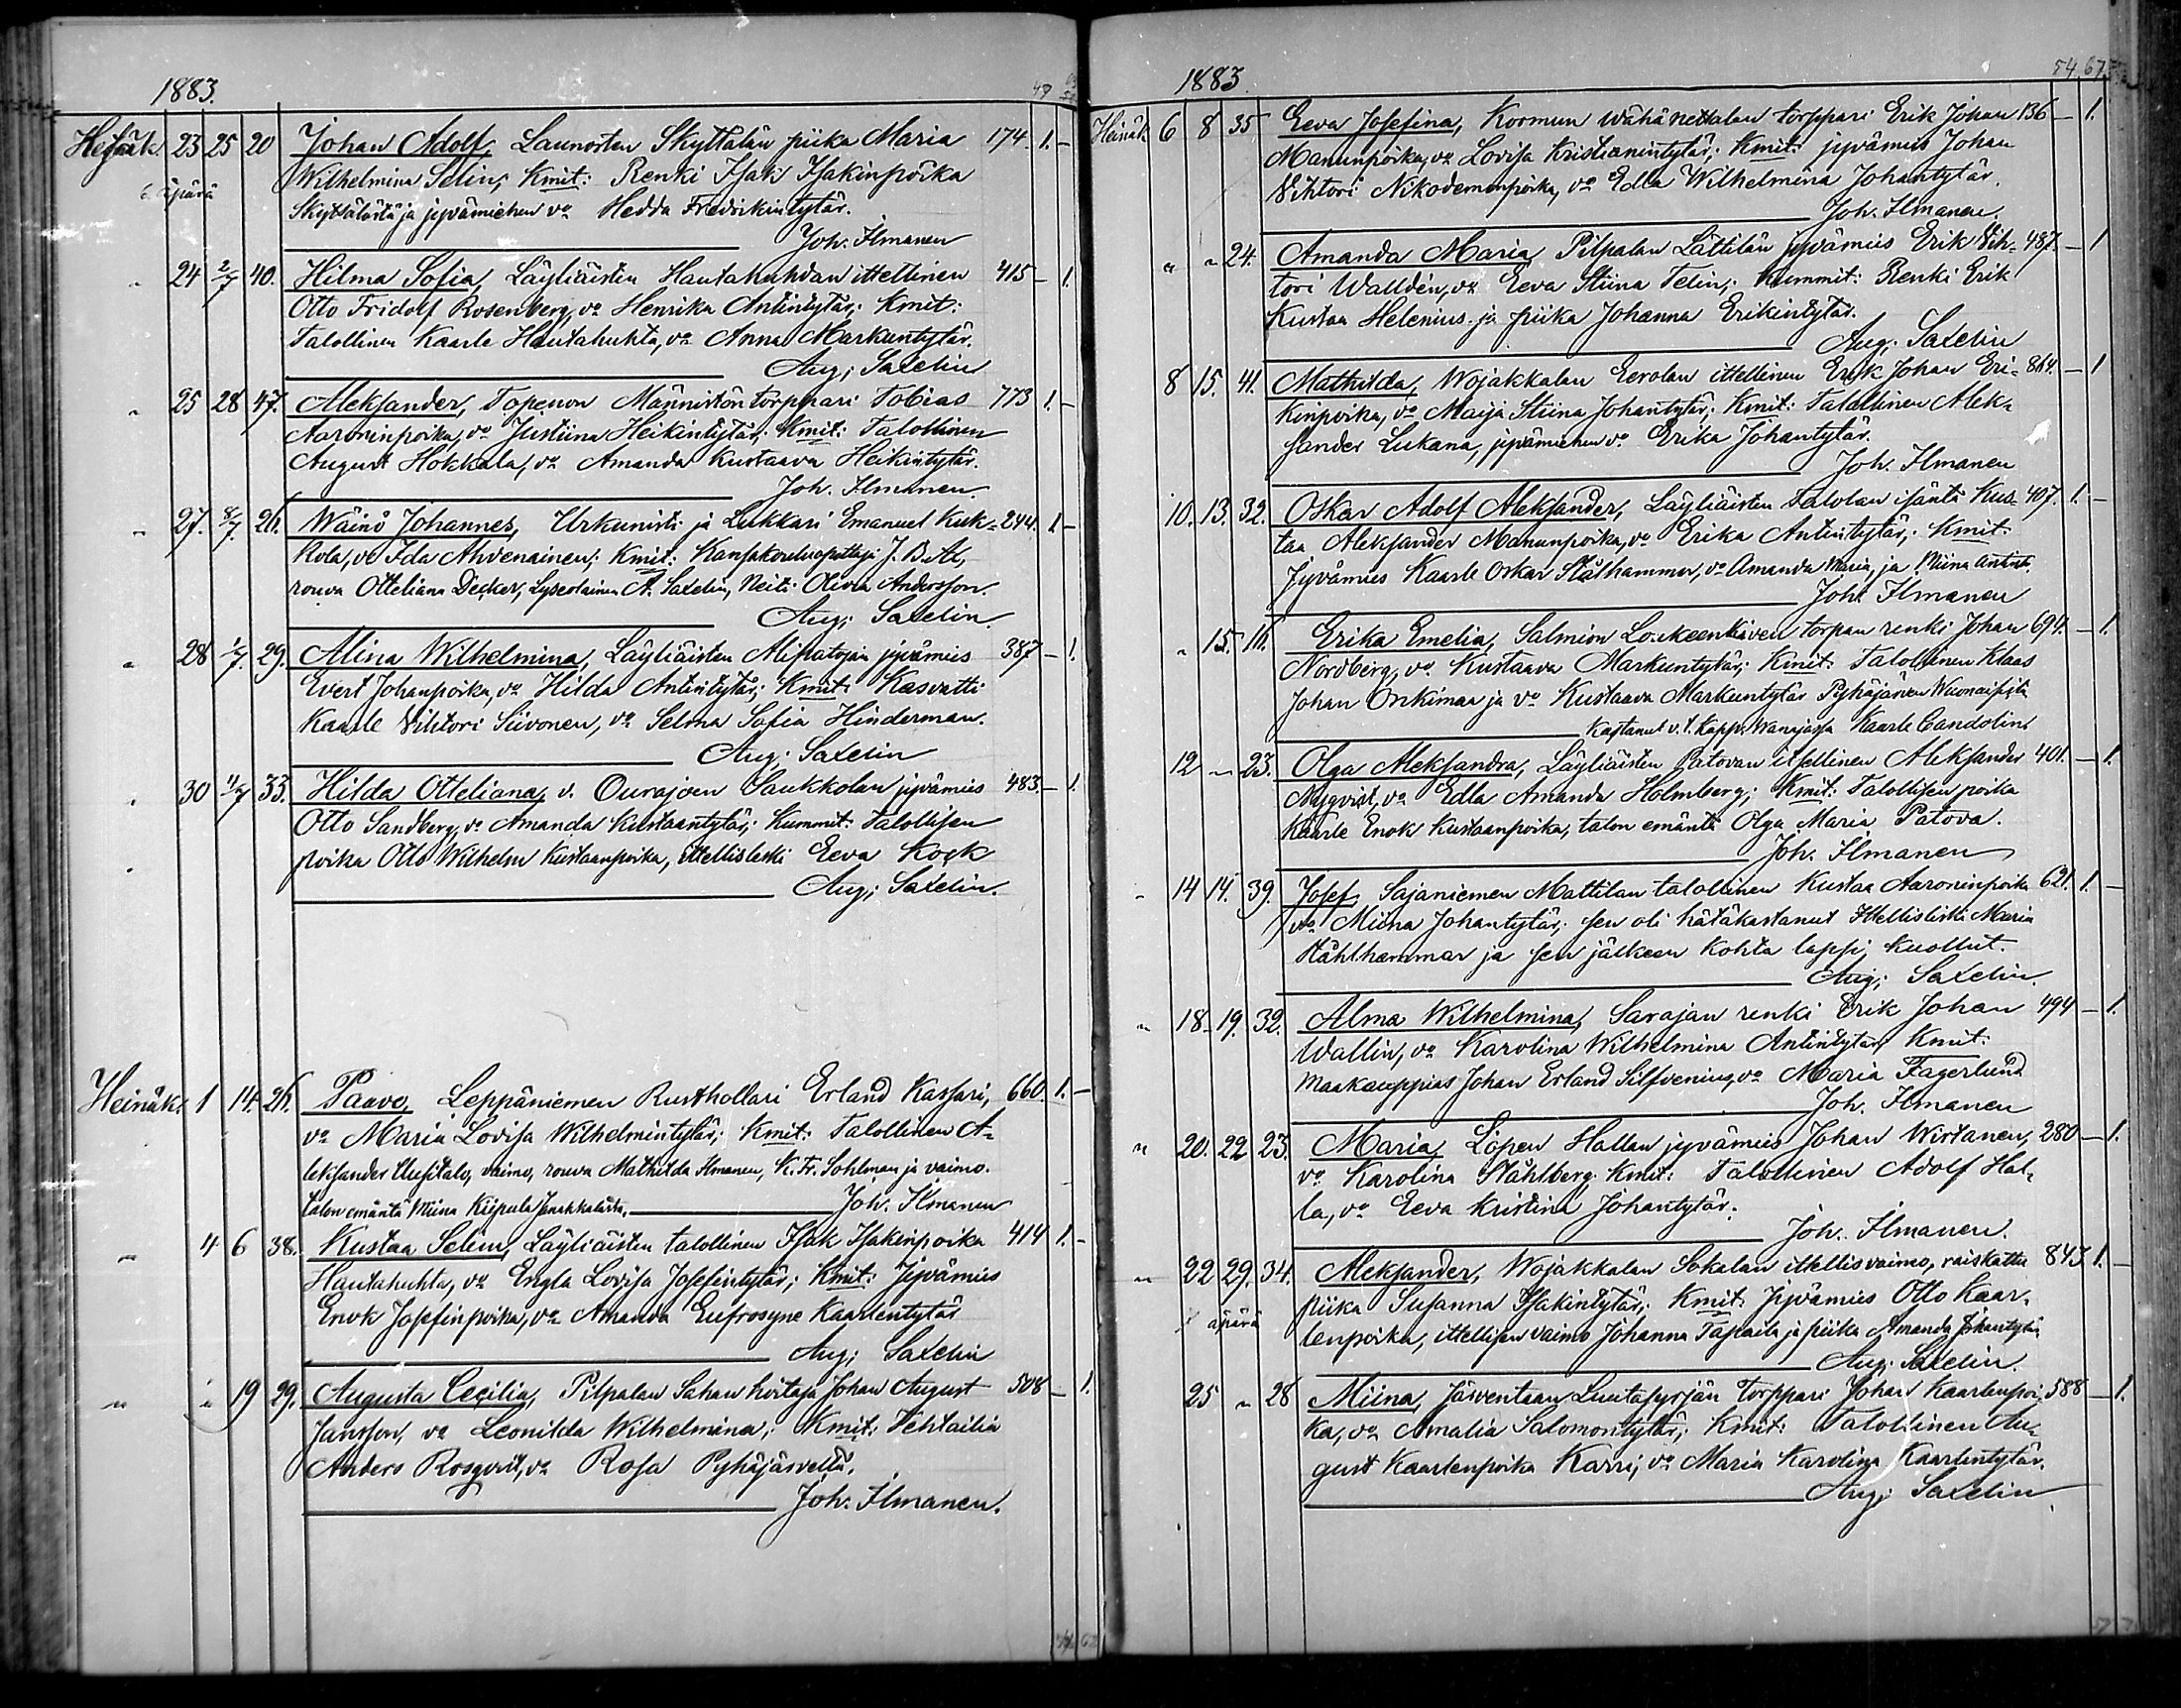 1883.
47
Kesäk. 23 25 20 Johan Adolf, Launosten Skyttälän piika Maria 174. 1. –
äpärä Wilhelmina Selin; Kmit: Renki Isak Isakinpoika
Skyttälästä ja jyvämiehen vo Hedda Fredrikintytär.
Joh. Ilmanen
" 24 2/7 40. Hilma Sofia, Läyliäisten Hautahuhdan ittellinen 415 – 1.
Otto Fridolf Rosenberg, vo Henrika Antintytär; Kmit:
Talollinen Kaarle Hautahuhta, vo Anna Markuntytär.
Aug; Saxelin
" 25 28 47. Aleksander, Topenon Männistön torppari Tobias 773 1. –
Aaroninpoika, vo Justiina Heikintytär; Kmit: Talollinen
August Hokkala, vo Amanda Kustaava Heikintytär.
Joh. Ilmanen.
" 27. 8/7. 26. Wäinö Johannes, Urkunisti ja Lukkari Emanuel Kuk- 244. 1 –
kola, vo Ida Ahvenainen; Kmit: Kansakouluopettaja J. B.
rouva Otteliana Decker, Lyseolainen A. Saxelin, Neiti Olivia Andersson.
Aug; Saxelin.
" 28 1/7. 29. Alina Wilhelmina, Läyliäisten jyvämies 387 – 1.
Evert Johanpoika, vo Hilda Antintytär; Kmit: Kasvatti
Kaarle Vihtori Siivonen, vo Selma Sofia Hinderman.
Aug; Saxelin
" 30 4/7 33. Hilda Otteliana, v. Ourajoen Saukkolan jyvämies 483. – 1.
Otto Sandberg, vo Amanda Kustaantytär; Kummit: Talollisen
poika Otto Wilhelm Kustaanpoika, ittellisleski Eeva Kock
Aug; Saxelin.
Heinäk. 1 14. 26. Paavo, Leppäniemen Rusthollari Erland Kassari, 660. 1. –
vo Maria Lovisa Wilhelmintytär; Kmit: Talollinen A-
leksander Uusitalo, vaimo, rouva Mathilda Ilmanen, K. Fr. Sohlman ja vaimo.
talon emäntä Miina Kiipula Janakkalasta. Joh. Ilmanen
" 4 6 38. Kustaa Selim, Läyliäisten talollinen Isak Isakinpoika 414 1. –
Hautahuhta, vo Engla Lovisa Josefintytär; Kmit: Jyvämies
Enok Josefinpoika, vo Amanda Eufrosyne Kaarlentytär
Aug; Saxelin
" " 19 29. Augusta Cecilia, Pilpalan Sahan hoitaja Johan August 508 – 1.
Jansson, vo Leonilda Wilhelmina; Kmit: Tehtailia
Anders Rosqvist, vo Rosa Pyhäjärveltä.
Joh. Ilmanen.
1883.
54. 67
Heinäk. 6 8 35 Eeva Josefina, Kormun wähänettalan torppari Erik Johan 136 – 1.
Manunpoika, vo Lovisa Kristianintytär; Kmit: jyvämies Johan
Vihtori Nikodemuspoika, vo Edla Wilhelmina Johantytär.
Joh. Ilmanen.
" " 24. Amanda Maria, Pilpalan Lättilän jyvämies Erik Vih- 487. – 1
tori Walldén, vo Eeva Stiina Telin; Kummit: Renki Erik
Kustaa Helenius ja piika Johanna Erikintytär.
Aug; Saxelin
8 15. 41. Mathilda, Wojakkalan Eerolan ittellinen Erik Johan Eri- 864. – 1
kinpoika, vo Maija Stiina Johantytär; Kmit: Talollinen Alek-
sander Lukana, jyvämiehen vo Erika Johantytär.
Joh. Ilmanen
10. 13. 32. Oskar Adolf Aleksander, Läyliäisten Talolan isäntä Kus- 407. 1. –
taa Aleksander Manunpoika, vo Erika Antintytär; Kmit:
Jyvämies Kaarle Oskar Stålhammar, vo Amanda Maria, ja Miina Antint.
Joh. Ilmanen
" 15. 16. Erika Emelia, Salmion Loukeenkiven torpan renki Johan 694. – 1.
Nordberg, vo Kustaava Markuntytär; Kmit: Talollinen Klaas
Johan Onkimaa ja vo Kustaava Markuntytär Pyhäjärven
Kastanut v. t. Kapp. Wanajassa Kaarle Candolin
12 " 23. Olga Aleksandra, Läyliäisten Patovan itsellinen Aleksander 401. – 1.
Nyqvist, vo Edla Amanda Holmberg; Kmit: Talollisen poika
Kaarle Enok Kustaanpoika, talon emäntä Olga Maria Patova.
Joh. Ilmanen
" 14 14. 39. Josef, Sajaniemen Mattilan talollinen Kustaa Aaroninpoika 621. 1. –
vo Miina Johantytär; sen oli hätäkastanut Ittellisleski Maria
Ståhlhammar ja sen jälkeen kohta lapsi kuollut.
Aug; Saxelin.
" 18 19. 32. Alma Wilhelmina, Sarajan renki Erik Johan 494 – 1.
Wallin, vo Karolina Wilhelmina Antintytär, Kmit:
Maakauppias Johan Erland Silfvenius, vo Maria Fagerlund
Joh. Ilmanen
" 20. 22 23. Maria, Lopen Hallan jyvämies Johan Wirtanen, 280 – 1.
vo Karolina Ståhlberg; Kmit: Talollinen Adolf Hal-
la, vo Eeva Kristina Johantytär.
Joh. Ilmanen.
" 22 29. 34. Aleksander, Wojakkalan Sokalan ittellisvaimo, raiskattu 843 1. –
äpärä piika Susanna Isakintytär; Kmit: Jyvämies Otto Kaar-
lenpoika, ittellisen vaimo Johanna Tapaila ja piika Amanda Johantytär
Aug: Saxelin.
25 " 28 Miina, Järventaan Luutasyrjän Torppari Johan Kaarlenpoi- 588 – 1.
ka, vo Amalia Salomontytär; Kmit: Talollinen Au-
gust Kaarlenpoika Karri, vo Maria Karolina Kaarlentytär.
Aug; Saxelin